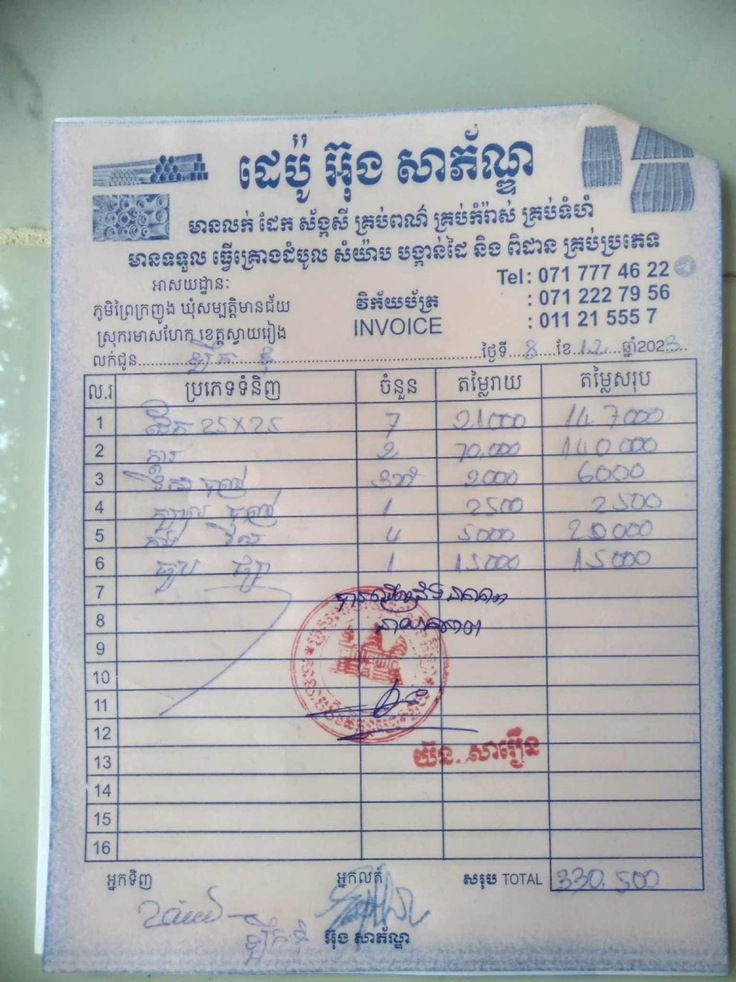 ដេប៉ូ អ៊ុង សាភ័ណ្ឌ
មានលក់ ដែក ស័ង្កសី គ្រប់ពណ៌ គ្រប់កំរ៉ាស់ គ្រប់ទំហំ
មានទទួល ធ្វើគ្រោងដំបូល សំយ៉ាប បង្កាន់ដៃ និង ពិដាន គ្រប់ប្រភេទ
អាសយដ្ឋានៈ
ភូមិព្រៃក្រញូង ឃុំសម្បត្តិមានជ័យ
ស្រុករមាសហែក ខេត្តស្វាយរៀង
វិក័យប័ត្រ
INVOICE
Tel: 071 777 46 22
: 071 222 79 56
: 011 21 555 7
លក់ជូន ថ្ងៃទី 8 ខែ 12 ឆ្នាំ 2023
ល.រ ប្រភេទទំនិញ ចំនួន តម្លៃរាយ តម្លៃសរុប
1 ដែក 25X25 7 21000 147000
2 2 70.000 140000
3 2000 6000
4 1 2500 2500
5 4 5000 20000
6 1 15000 15000
7
8
9
10
11
12
13
យ៉ន. សារឿន
14
15
16
អ្នកទិញ អ្នកលក់ សរុប TOTAL 330.500
អ៊ុង សាភ័ណ្ឌ